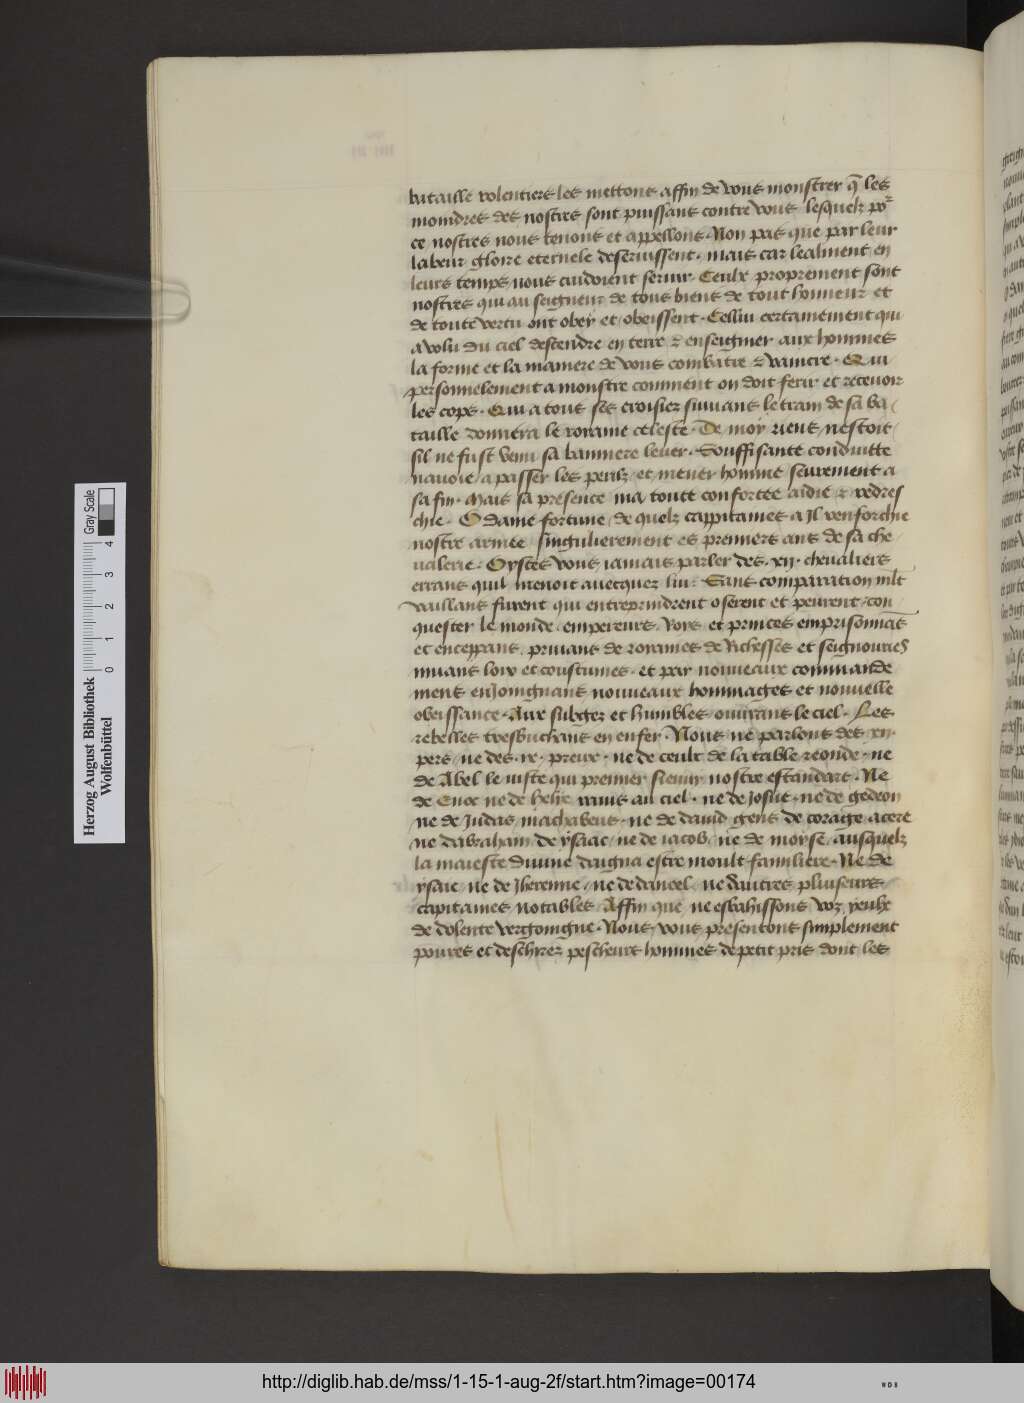 bataille volentiers les mettons affin de vous monstrer q̃ les
moindres des nostres sont puissans contre vous lesquelz po͛
ce nostres nous tenons et appellons. Non pas que par leur
labeur gloire eternele desservissent. mais car lealment en
leurs temps nous cuidoient servir. Ceulx proprement sont
nostres qui au seigneur de tous biens de tout honneur et
de toute vertu ont obey et obeissent. Cellui certainement qui
a volu du ciel descendre en terre & enseignier aux hommes
la forme et la maniere de vous combatre & vaincre. Qui
personnelement a monstre comment on doit ferir et recevoir
les cops. Qui a tous ses croisiez suivans le train de sa ba-
taille donnera le roiaume celeste. De moy riens nestoit
sil ne fust venu sa banniere lever. Souffisante conduitte
navoie a passer les perilz et mener homme seurement a
sa fin. Mais sa presence ma toute confortee aidie & redres
chie. O dame fortune de quelz cappitaines a Il renforchie
nostre armee singulierement es premiers ans de sa che
valerie. Oystes vous iamais parler des .xii. chevaliers
errans quil menoit avecquez lui. Sans comparation mlt
vaillans furent qui entreprindrent oserent et peurent con
quester le monde. empereurs Roys et princes emprisonnãs
et enceppans. privans de roiames de Richesses et seignouries
muans loix et coustumes. et par nouveaux commande
mens enJoingnans nouveaux hommages et nouvelle
obeissance. Aux subgez et humbles ouvrans le ciel. Les
rebelles tresbuchans en enfer. Nous ne parlons des .xii.
pers ne des .ix. preux. ne de ceulx de la table reonde. ne
de Abel le iuste qui premier sievuy nostre estandart. Ne
de Enoc ne de helye ravis au ciel. ne de Josue. ne de gedeon
ne de Judas machabeus. ne de david gens de corage acere
ne dabraham de ysaac ne de iacob. ne de moyse ausquelz
la maieste divine daigna estre moult familiere. Ne de
ysaie ne de Jheremie. ne de daniel. ne dautres pluiseurs
capitaines notables. Affin que ne esbahissons voz yeulx
de dolente vergoingne. Nous vous presentons simplement
povres et deschirez pescheurs hommes de petit pris dont les
Herzog August Bibliothek
Wolfenbüttel
Gray Scale
0 1 2 3 4
http://diglib.hab.de/mss/1-15-1-aug-2f/start.htm?image=00174
WDB